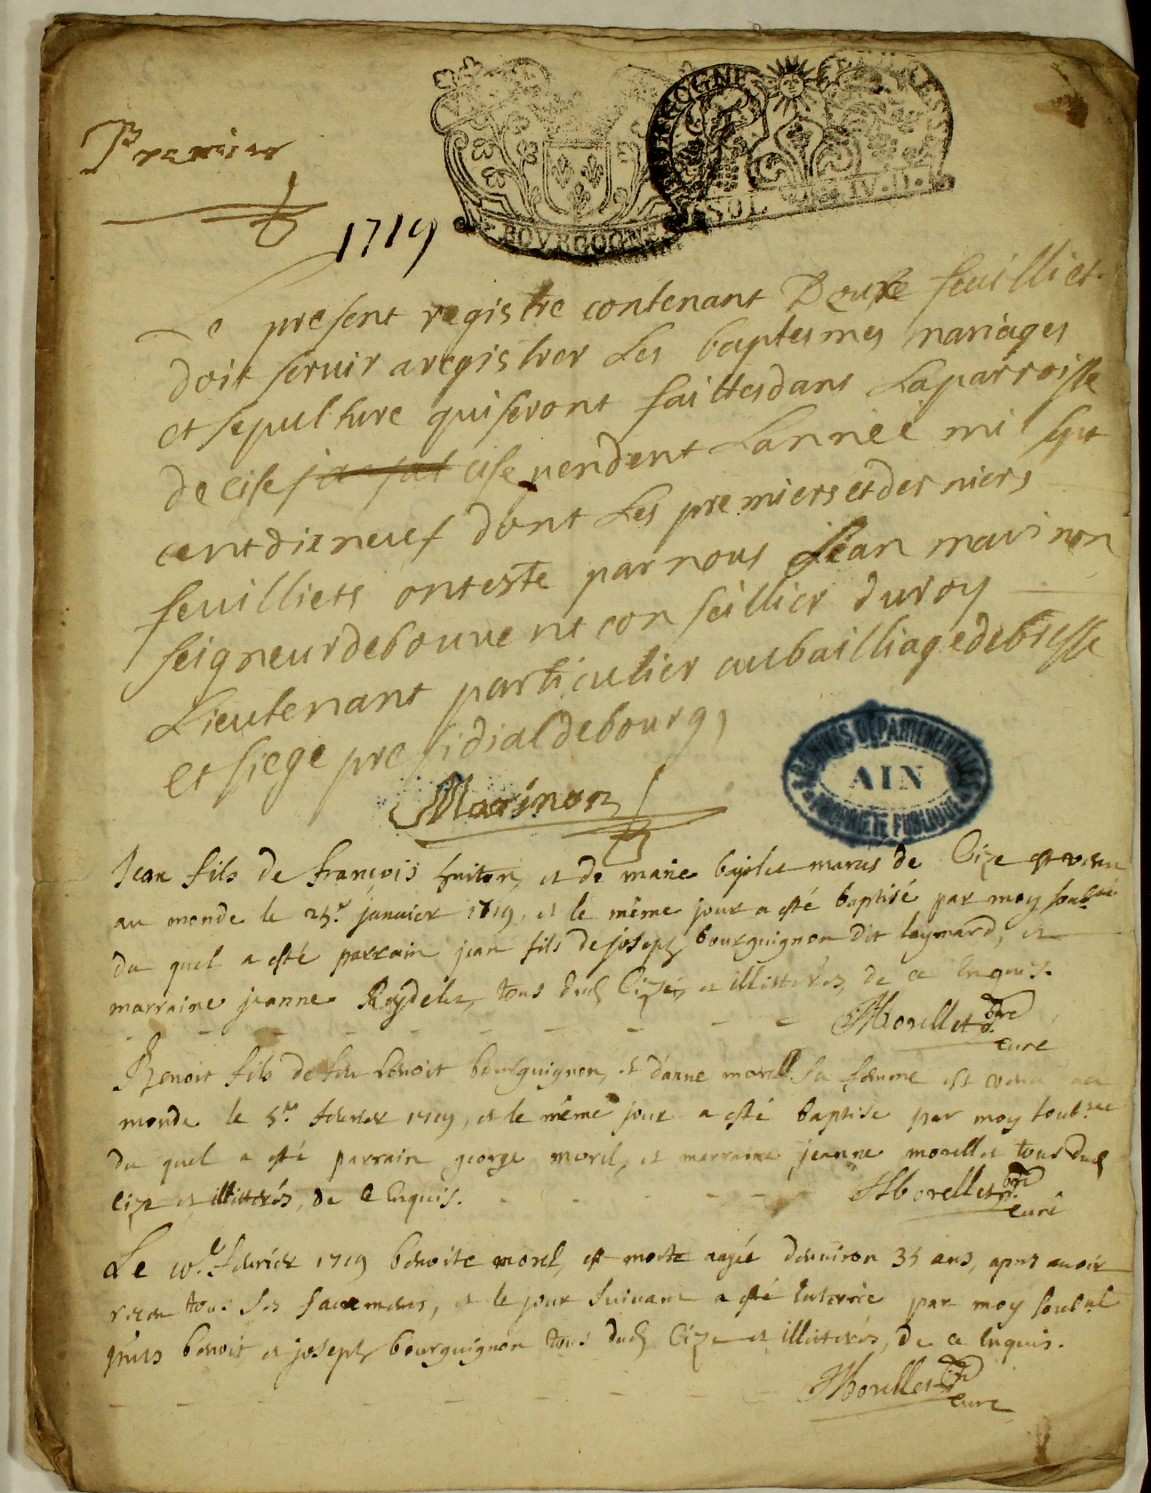 Premier
BOVRGOGNE
BOVRGOGNE
SOL IV. D.
1719
Ce present registre contenant Douze feuilliets
doit servir a registrer Les baptesmes mariages
et sepulture qui seront faittes dans Laparroisse
de cise cise pendent Lannée mil sept
cent dix neuf dont Les premiers et derniers
feuilliets ont esté par nous Jean marinon
seigneur de bouuent conseillier du roy
Lieutenant particulier au bailliage de bresse
et siege presidial de bourg
Marinon
ARCHIVES DÉPARTEMENTALES
AIN
PROPRIÉTÉ PUBLIQUE
Jean fils de françois et de marie mariés de Cize est venu
au monde le 25e janvier 1719, et le même jour a esté baptisé par moy soubné
du quel a esté parrain jean fils de joseph bourguignon dit laymard, et
marraine jeanne tous dud Cize, et illitterés, de ce Enquis.
Morellet pbre
curé
Benoit fils de feu benoit bourguignon, et d'anne morell sa femme est venu au
monde le 5e febvrier 1719, et le même jour a esté baptisé par moy soubné
du quel a esté parrain george morel, et marraine jeanne morellet tous dud
Cize et illitterés, de ce Enquis.
Morellet pbre
curé
Le 10e febvrier 1719 benoite morel, est morte aagée d'environ 35 ans, apres avoir
receu tous ses sacremens, et le jour suivant a esté Enterrée par moy soubné
pnts benoit et joseph bourguignon tous dud Cize et illitterés, de ce Enquis.
Morellet pbre
curé